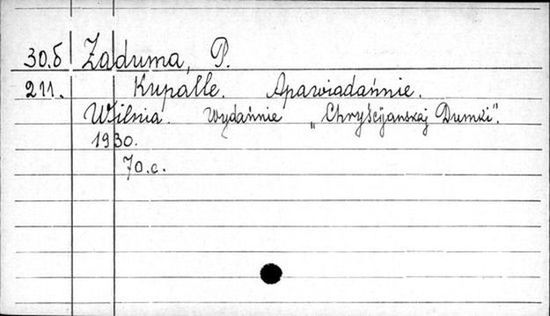 30.б Zaduma, P.
211. Kupalle. Apawiadańnie.
Wilnia. Wydańnie „Chryścijanskaj Dumki".
1930.
70.c.